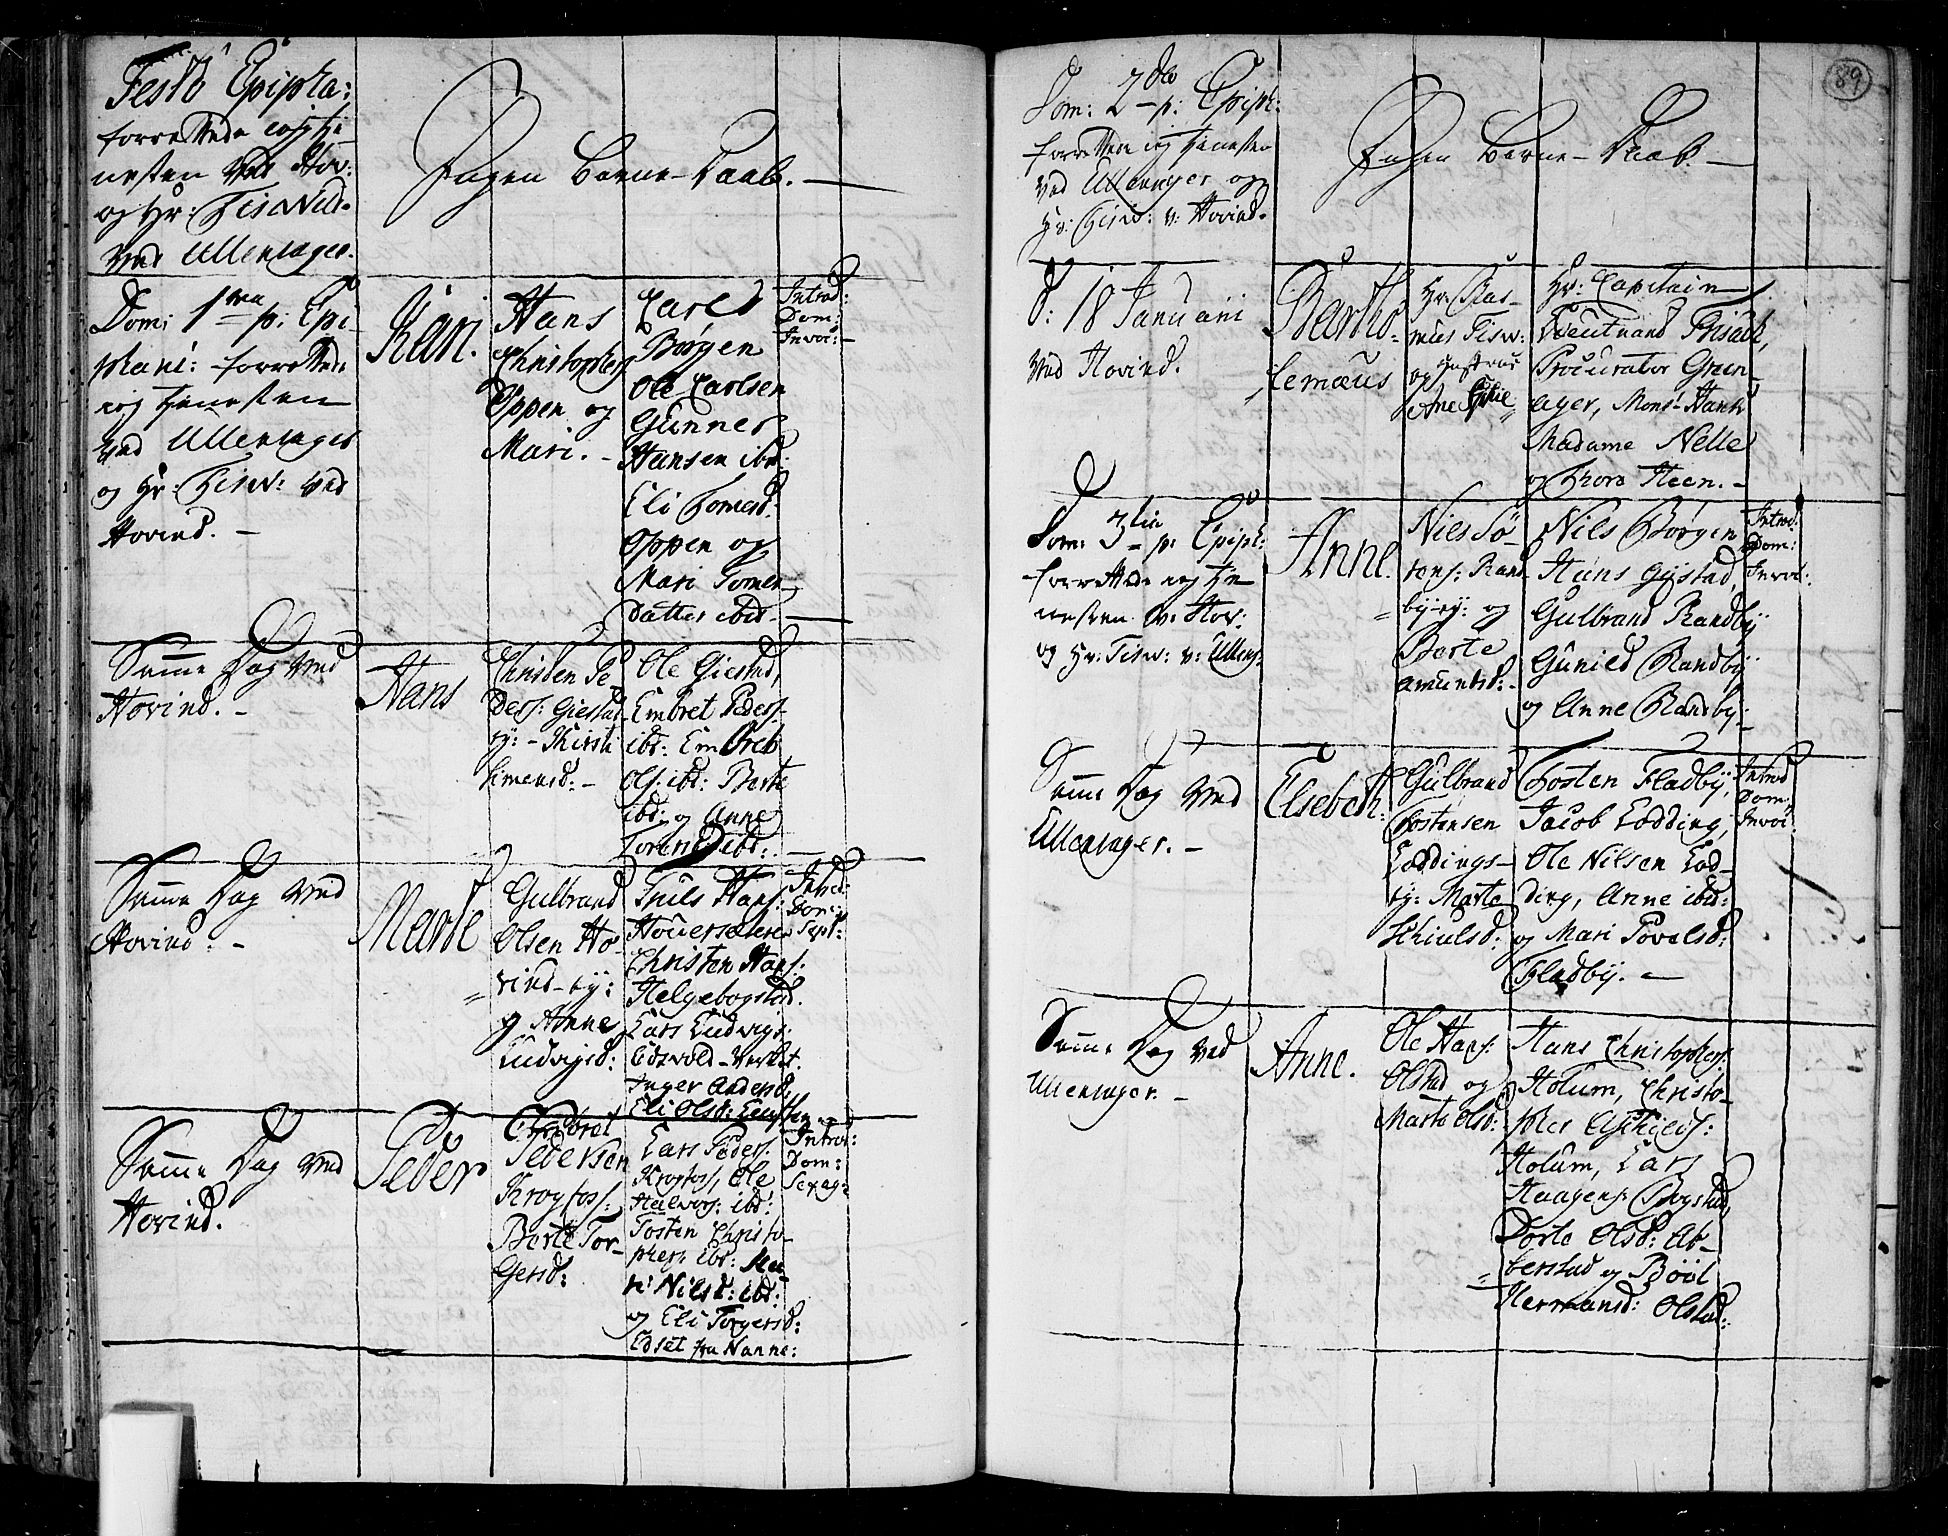 Festo Epipha:
forrettede ieg tie-
nesten ved Hov:
og Hr: Tiswed:
ved Ullensager.
Ingen Børne-Daab.
Dom: 1ma p: Epi-
phani: forrettede
ieg tienesten
ved Ullensager
og Hr: Tisw: ved
Hovind. -
Kari.
Hans
Christophers:
Oppen og
Mari. -
Carl
Børgen
Ole Carlsen
Gunner
Hansen ibd:
Eli Tomesd:
Oppen og
Mari Tomes
Datter ibid. -
Introd:
Dom:
Invoc: -
Samme Dag ved
Hovind. -
Hans
Christen Pe
ders: Giestad
ey: - Kirsti
Simensd: -
Ole Giestad,
Embret Peders:
ibd: Embret
Ols: ibd: Berte
ibd: og Anne
Torend: ibd:
Samme Dag ved
Hovind: -
Marte
Gulbrand
Olsen Ho-
vind-ey:
og Anne
Ludvigsd:
Truls Hans:
Houerseteren
Christen Hans:
Helgebogstad.
Lars Ludvigs:
Eidsvold-Verket.
Inger Andersd:
Eli Olsd:
Introd:
Dom:
Sept:
Samme Dag ved
Hovind.
Peder
Embret
Pedersen
Krogfoss:
Berte Tor-
gersd:
Lars Peders:
Krogfoss, Ole
Halvors: ibd:
Tosten Christo-
phers: ibd: Ma-
ri Nilsd: ibd:
og Eli Torgersd:
Edset fra Nanne:
Introd:
Dom:
Sexag:
89
Dom: 2da p: Epiph:
forrettede ieg tienesten
ved Ullensager og
Hr: Tisw: v: Hovind.
Ingen Børne-Daab. -
d: 18 Januarii
ved Hovind.
Bartho-
lemæus
Hr: Ras-
mus Tisw:
og Hustrue
Ane
Hr: Capitain
Lieutnand Frisach,
Procurator Grøn-
ager, Mons: Hank
Madame Nelle
og Thora Heen. -
Dom: 3tia p: Epiph:
forrettede ieg tie
nesten v: Hov:
og Hr: Tisw: v: Ullens:
Anne.
Niels Sø-
rens: Rand
by-ey: og
Berte
Amundsd: -
Nils Børgen
Hans Gystad,
Gulbrand Randby
Gunild Randby
og Anne Randby. -
Introd:
Dom:
Invoc:
Samme Dag ved
Ullensager. -
Elsebeth:
Gulbrand
Tostensen
Lodding-
ey: Marte
Schiulsd:
Tosten Fladby,
Jacob Lodding,
Ole Nilsen Lod-
ding, Anne ibd:
og Mari Povelsd:
Fladby. -
Introd
Dom:
Invoc:
Samme Dag ved
Ullensager. -
Anne.
Ole Hans:
Olstad og
Marte Olsd: -
Hans Christophers:
Holum, Christo-
pher
Holum, Lars
Haagens: Bogstad,
Dorte Olsd: Al-
berstad og Bøol
Hermansd: Olstad.